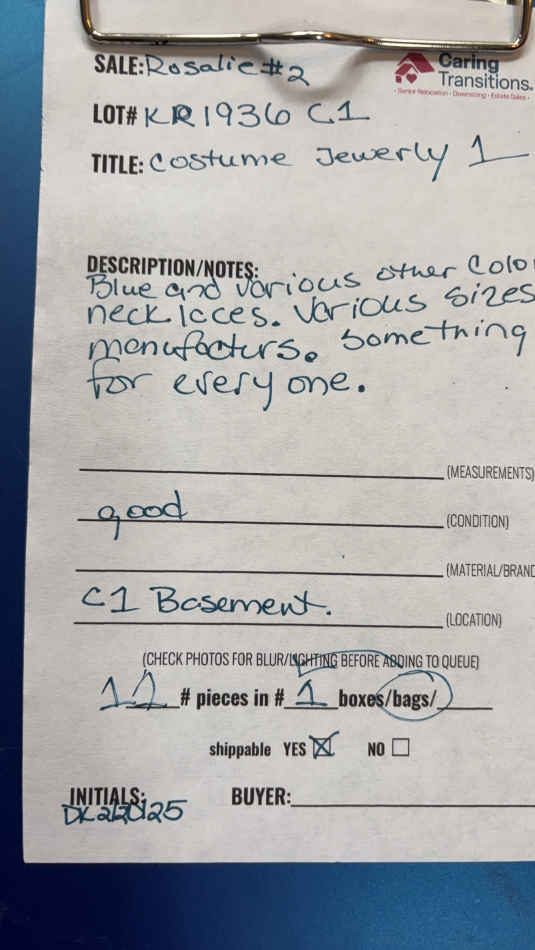 Caring
SALE: Rosalie #2
Transitions.
• Senior Relocation • Downsizing • Estate Sales •
LOT# KR1936 C1
TITLE: Costume Jewerly 1
DESCRIPTION/NOTES:
Blue and various other Colo
necklcces. Various sizes
menufacturs. Something
for every one.
(MEASUREMENTS)
good (CONDITION)
(MATERIAL/BRAND
C1 Basement. (LOCATION)
(CHECK PHOTOS FOR BLUR/LIGHTING BEFORE ADDING TO QUEUE)
11 # pieces in # 1 boxes/bags/
shippable YES ☒ NO ☐
INITIALS: BUYER:
DK 2/20/25